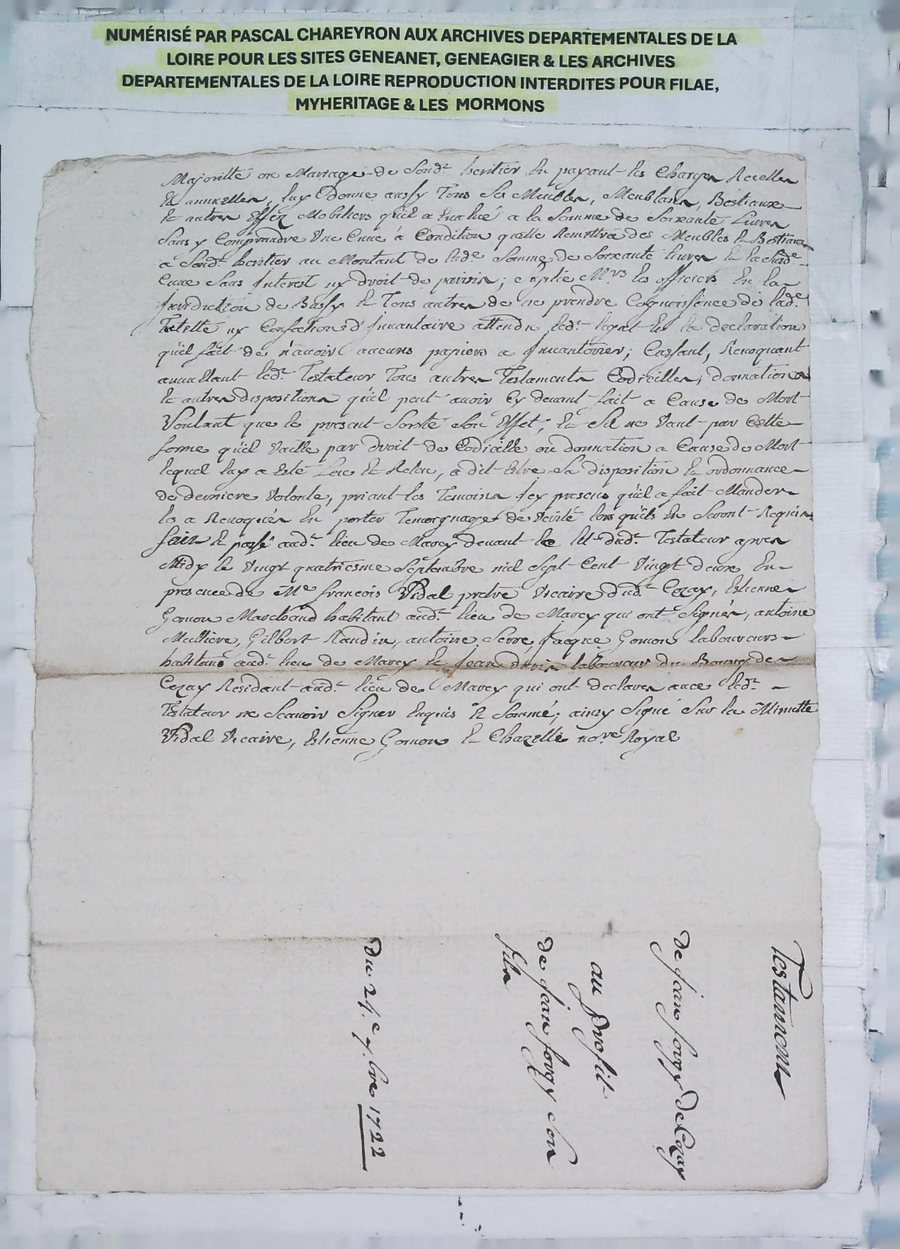 NUMÉRISÉ PAR PASCAL CHAREYRON AUX ARCHIVES DEPARTEMENTALES DE LA
LOIRE POUR LES SITES GENEANET, GENEAGIER & LES ARCHIVES
DEPARTEMENTALES DE LA LOIRE REPRODUCTION INTERDITES POUR FILAE,
MYHERITAGE & LES MORMONS
Majoritté ou Mariage de Sond.t heritier En payant les Charges Reelles
Et annuelles, luy Edonne aussy Tous Ses Meubles, Meublans, Bestiaux
Et autres Efféz Mobiliers quil a Evalué a la Somme de Soixante Livres
Sans y Comprendre Une Cuve a Condition qualle Remettra des Meubles Et Bestiaux
a Sond.t heritier au Montant de lad.e Somme de Soixante livres Et la Sud.e
Cuve Sans Interest ny droit de ; Suplie M.rs les officiers En la
Jurisdiction de Bussy Et Tous autres de ne prendre Cognoissence de lad.e
Tutelle ny Confection d'Invantaire attendu led.t legat Et la declaration
quil fait de n'avoir aucuns papiers a Invantorier; Cassant, Revoquant
annullant led.t Testateur Tous autres Testaments Codicilles, donnations
Et autres dispositions quil peut avoir Cy devant fait a Cause de Mort
Voulant que le present Sorte Son Effet, Et Sil ne Vaut par Cette
forme quil Vaille par droit de Codicille ou donnation a Cause de Mort
lequel luy a Esté Leu Et Releu, a dit Estre Sa disposition Et ordonnance
de derniere Volonté, priant les Temoins Icy presens quil a fait Mander
Et Requis En porter Temoignage de Verité lors quils En Seront Requis
fait Et passé aud.t lieu de Marcy devant le lit dud.t Testateur apres
Midy le Vingt quatriesme Septembre mil Sept Cent Vingt deux En
presence de M.e françois Vidal pretre Vicaire dud.t Cezay, Estienne
Gomon Marchand habitant aud.t lieu de Marcy qui ont Signés, antoine
Mulliere, Gilbert Naudin, antoine Serre, Jacque Gomon laboureurs
habitans aud.t lieu de Marcy Et Jean laboureur du Bourg de
Cezay Residant aud.t lieu de Marcy qui ont declarer avec led.t
Testateur ne Scavoir Signer Enquis Et Sommé; ainsy Signé Sur la Minutte
Vidal Vicaire, Estienne Gomon Et Chazelle no.re Royal
Testament
de Jean forgy de Cezay
au Profit
de Jean forgy Son
fils
du 24.e 7.bre 1722